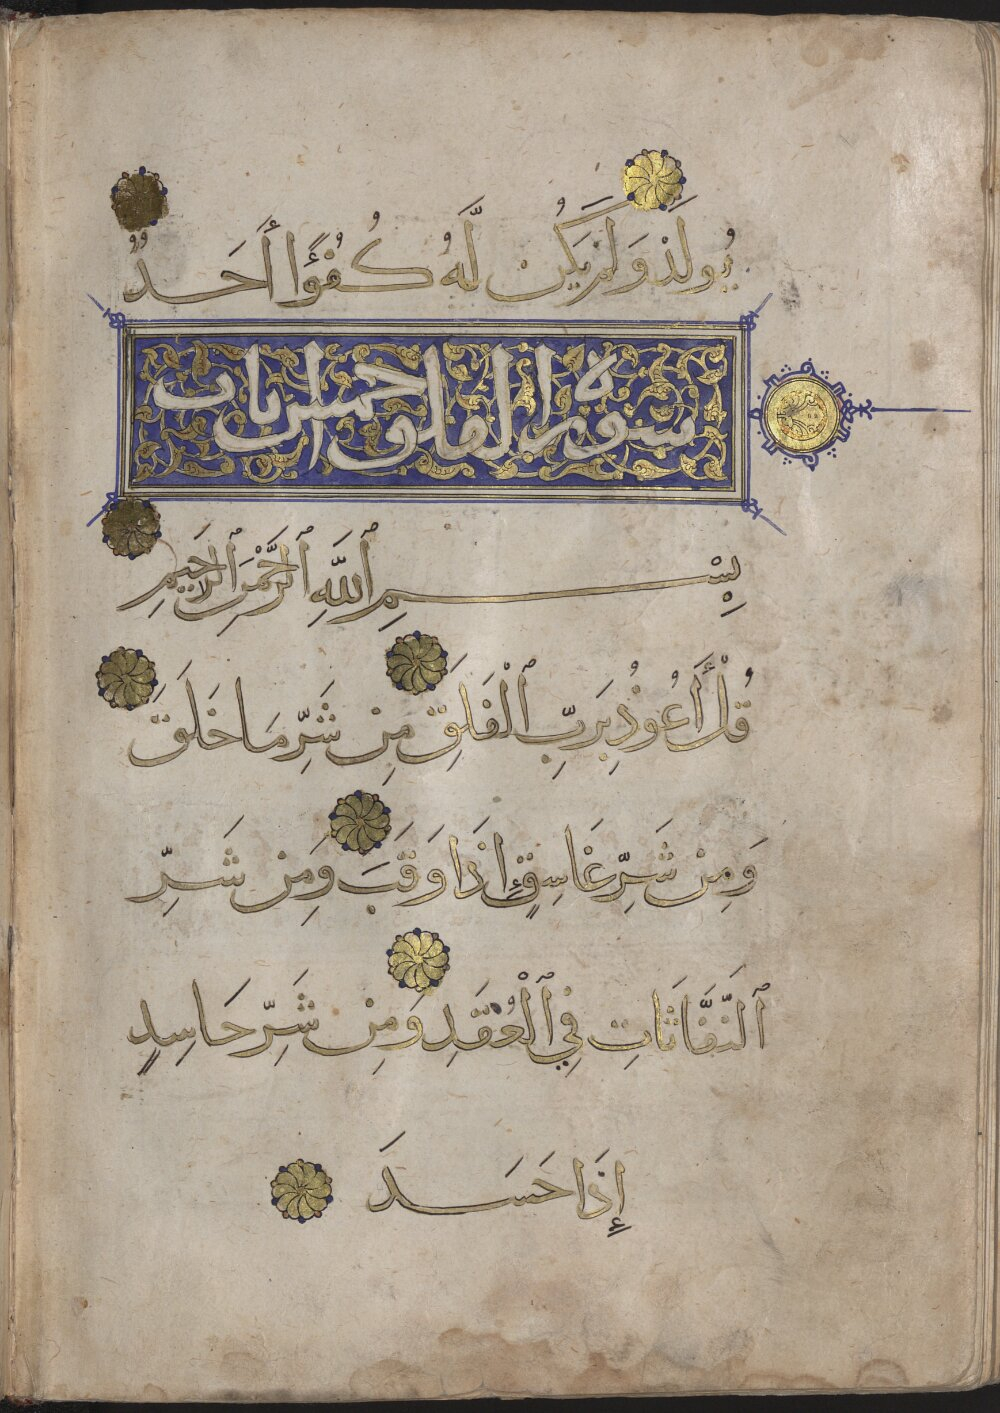 يُولَدْ وَلَمْ يَكُنْ لَّهُ كُفُؤًا أَحَدٌ
سورة الفلق خمس ايات
بِسْمِ ٱللَّهِ ٱلرَّحْمَٰنِ ٱلرَّحِيمِ
قُلْ أَعُوذُ بِرَبِّ ٱلْفَلَقِ مِن شَرِّ مَا خَلَقَ
وَمِن شَرِّ غَاسِقٍ إِذَا وَقَبَ وَمِن شَرِّ
ٱلنَّفَّاثَاتِ فِي ٱلْعُقَدِ وَمِن شَرِّ حَاسِدٍ
إِذَا حَسَدَ